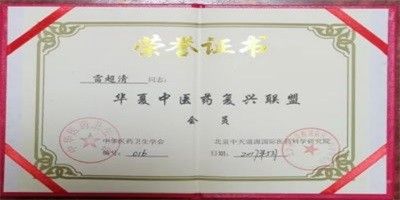 荣誉证书
雷超清 同志:
华夏中医药复兴联盟
会 员
中华医药卫生学会 北京中天道源国际医药科学研究院
编号: 016 日期: 2017年5月